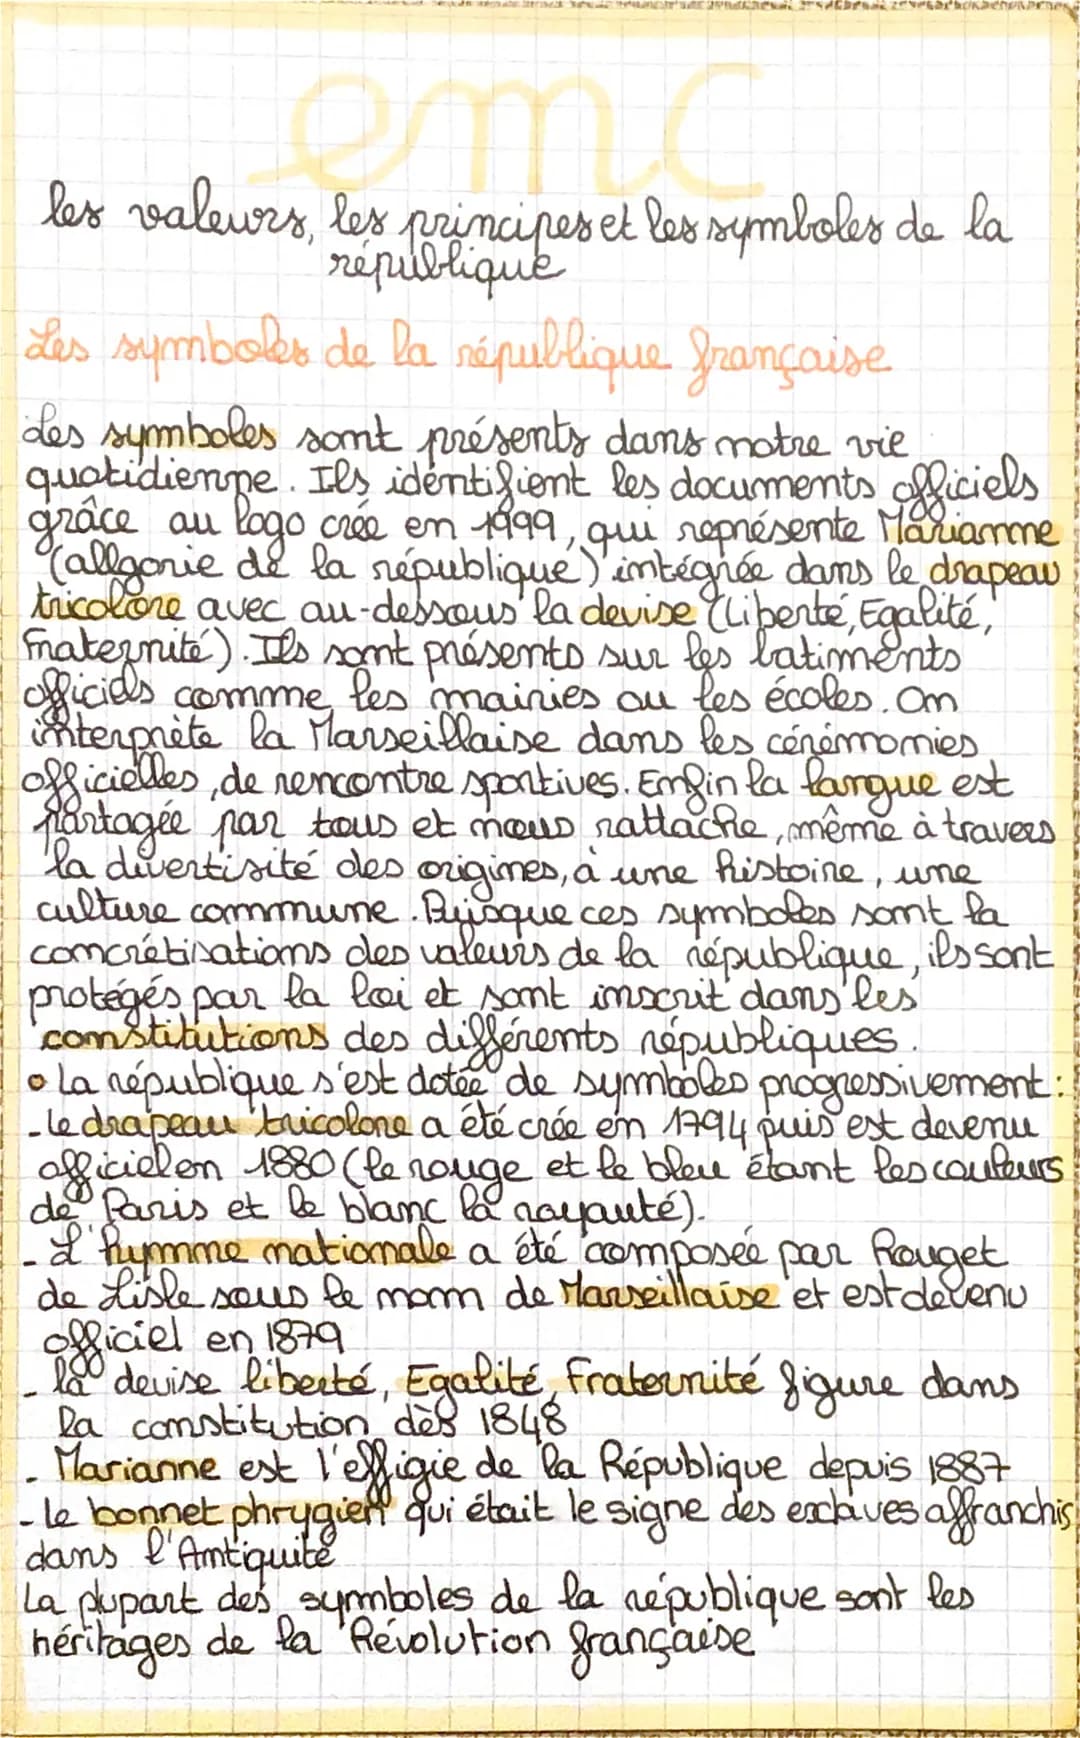 emc
les valeurs, les principes et les symboles de la
république
Les symboles de la république française
Les symboles sont présents dans notre vie
quotidienne. Ils identifient les documents officiels
grâce au logo crée en 1999, qui représente Marianne
(allgorie de la république) intégrée dans le drapeau
tricolore avec au-dessous la devise (Liberté, Egalité,
Fraternité). Ils sont présents sur les batiments
officiels comme les mairies ou les écoles. On
interprète la Marseillaise dans les cérémomies
officielles, de rencontre sportives. Enfin la langue est
partagée par tous et nous rattache, même à travers
la divertisité des origines, à une histoire, une
culture commune. Puisque ces symboles sont la
concrétisations des valeurs de la république, ils sont
protégés par la loi et sont inscrit dans les
constitutions des différents républiques.
• La république s'est dotée de symboles progressivement :
- Le drapeau tricolore a été crée en 1794 puis est devenu
officiel en 1880 (le rouge et le bleu étant les couleurs
de Paris et le blanc la royauté).
- L'hymne nationale a été composée par Rouget
de Lisle sous le nom de Marseillaise et est devenu
officiel en 1879
- la devise liberté, Egalité, Fraternité figure dans
la constitution dès 1848
- Marianne est l'effigie de la République depuis 1887
- Le bonnet phrygien qui était le signe des esclaves affranchis
dans l'Antiquité
La plupart des symboles de la république sont les
héritages de la Révolution française